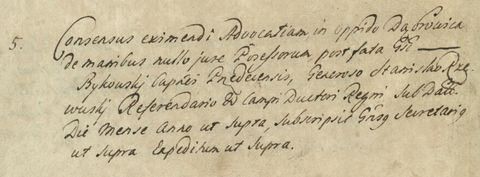 5. Consensus eximendi Advocatiam in oppido Dąbrowica
de manibus nullo jure Possessorum post fata Gsi ——
Bykowski Capnei Prede censis, Generoso Stanislao Rze
wuski Referendario & Campi Ductori Regni sub Datt
Die Mense Anno ut supra, subscripsit Gnsq Secretariq
ut supra Expeditum ut supra.